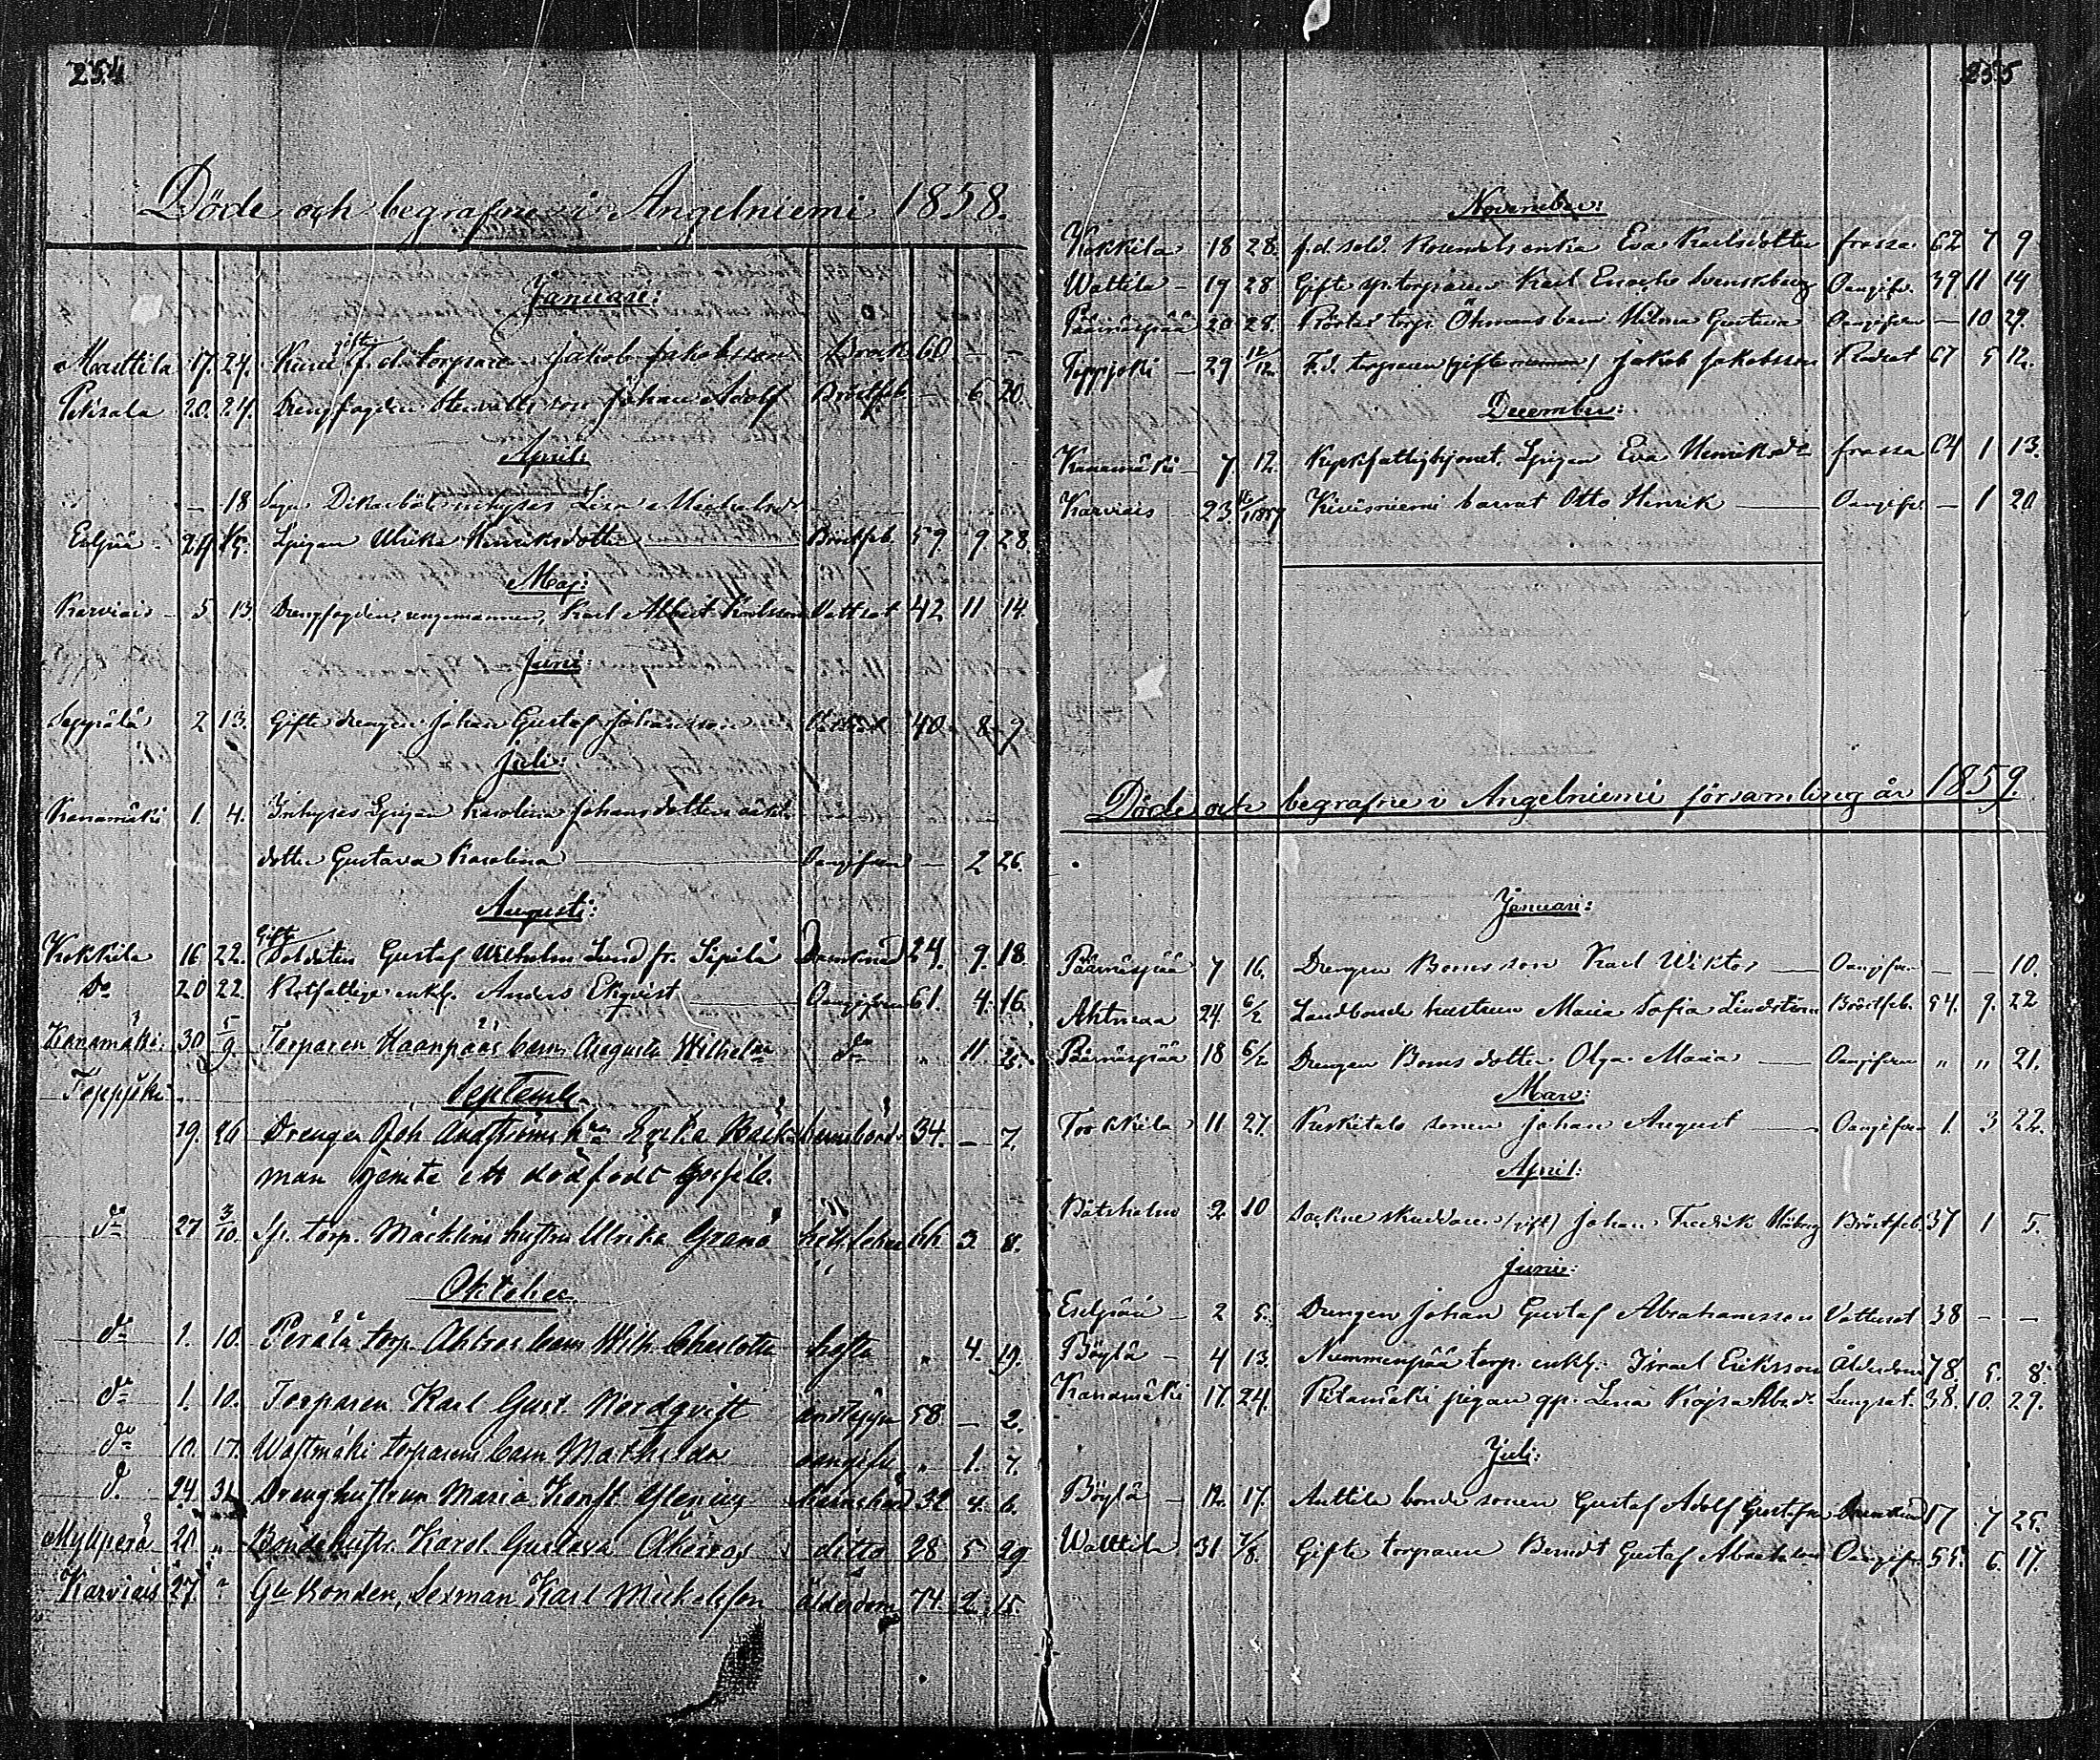 254
Döde och begrafne i Angelniemi 1858.
Januari:
Marttila 17. 24. gift f. d. torparen Jakob Jakobsson Brock 60 - -
Peksala 20. 24. Drengfogden son Johan Adolf Bröstfeb. - 6 20.
April:
- 18 inhyses Lisa Michelsdr
24 Spigan Ulrika Henriksdotter Bröstfeb. 59. 9. 28.
Maj:
Karviais - 5 13. Drengfogden, Karl Albert Karlsson Vattsot 42 11 14.
Juni:
Seppälä 2 13. Gifte drengen Johan Gustaf Johansson 40 8 9
Juli:
Kanamäki 1. 4. Inhyses Spigan Karolina Johansdotters oäkt.
dotter Gustava Karolina Oangifven - 2 26.
Augusti:
Kokkila 16 22. Gifte Soldaten Gustaf Wilhelm Lund fr. Sipilä Drunknad 24. 9. 18.
Do 20 22. Rotfattige enkl. Anders Ekqvist Oangifven 61. 4. 16.
Kanamäki 30 5/9 Torparen Haanpääs barn Augusta Wilhelm. do " 11
Teppjoki
September
19. 26 Drengen Joh. hu Erika Bäck- barnsbörd 34. - 7.
man jemte ett dödfödt
do 27 3/10. Sp. torp. Mäcklins hustru Ulrika Granö 66 3. 8.
Oktober
do 1. 10. Perälä torp. barn Wilh. Charlotta hosta " 4. 19.
do 1. 10. Torparen Karl Gust. Nordqvist 58 - 2.
do 10. 17. Wastmäki torparens barn Mathilda oangifv. " 1. 7.
d. 24. 31. Drenghustrun Maria 32 4. 6.
Myllperä 20 " Bondehustr. Karol. Gustava ditto 28 5 29
Karviais 27 " Gl. Bonden, Sexman Karl Michelsson Ålderdom 74. 2. 15.
255
November:
Kokkila 18 28. f. d. sold. enka Eva Karlsdotter frossa 62 7 9
Wattila - 19 28 Gifte sp. torparen Karl Enochs Svensberg Oangifv. 39 11 14
Päärnäspää 20 28. torp. Öhmans barn Hilma Gustava Oangifven - 10 29.
Teppjoki - 29 12/12. F. d. torparen (gifte) Jakob Jakobsson Rödsot 67 5 12.
December:
Kanamäki - 7. 12. Kyrkfattighjonet. Spigan Eva Henriksdr frossa 64 1 13.
Karviais - 23 Kivisniemi barnet Otto Henrik Oangifv. - 1 20
Döde och begrafne i Angelniemi församling år 1859.
Januari:
Päärnäspää 7 16. Drengen Boms son Karl Wiktor Oangifven - - 10.
Ahtmaa 24. 6/2 Landbonde hustrun Maria Sofia Lindström Bröstfeb. 54. 9. 22
Päärnäspää 18 6/2 Drengen Boms dotter Olga Maria Oangifven " " 21.
Mars:
Torkkila 11 27. Keskitalo sonen Johan August Oangifven 1. 3 22.
April:
Båtsholm 2 10 (gift) Johan Fredrik Bröstfeb. 37 1 5.
Junii:
Eselpää - 2 5. Drengen Johan Gustaf Abrahamsson Vattusot 38 - -
Böylä - 4 13. Nummenpää torp. enkl. Israel Eriksson Ålderdom 78. 5. 8.
Kanamäki 17. 24. Riitamäki pigan gp. Lena Kajsa Abr.dr Lungsot. 38. 10. 29.
Juli:
Böylä - 12. 17. Anttila bonde sonen Gustaf Adolf Gustafss. Drunknad 17 7 25.
Wattila 31 7/8. Gifte torparen Berndt Gustaf Oangifv. 55. 6. 17.